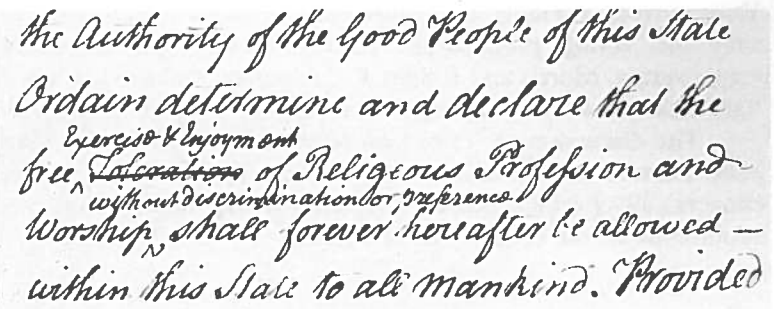 the Authority of the Good People of this State
Ordain determine and declare that the
Exercise & Enjoyment
free Toleration of Religeous Profession and
without discrimination or preference
Worship shall forever hereafter be allowed —
within this State to all mankind. Provided